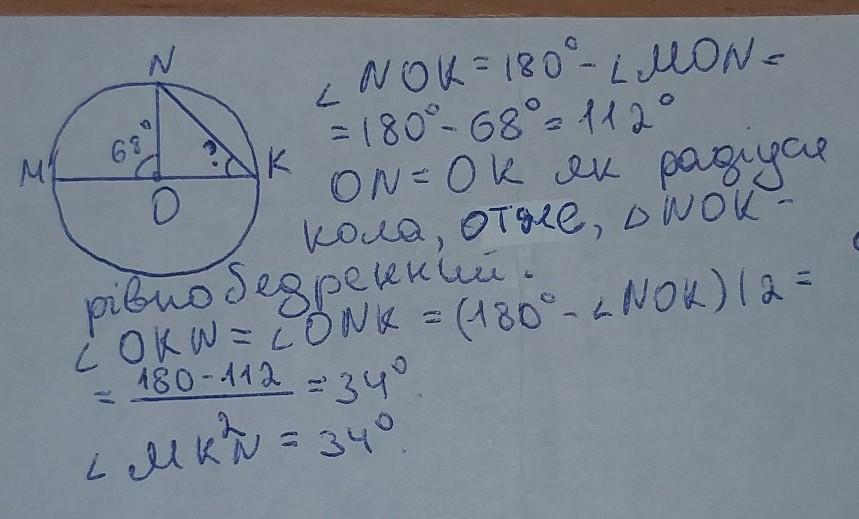 N
∠NOK = 180° - ∠MON =
68° ?
= 180° - 68° = 112°
M O K
ON = OK як радіуси
кола, отже, △NOK -
рівнобедренний.
∠OKN = ∠ONK = (180° - ∠NOK) / 2 =
= (180 - 112)/2 = 34°
∠MKN = 34°.